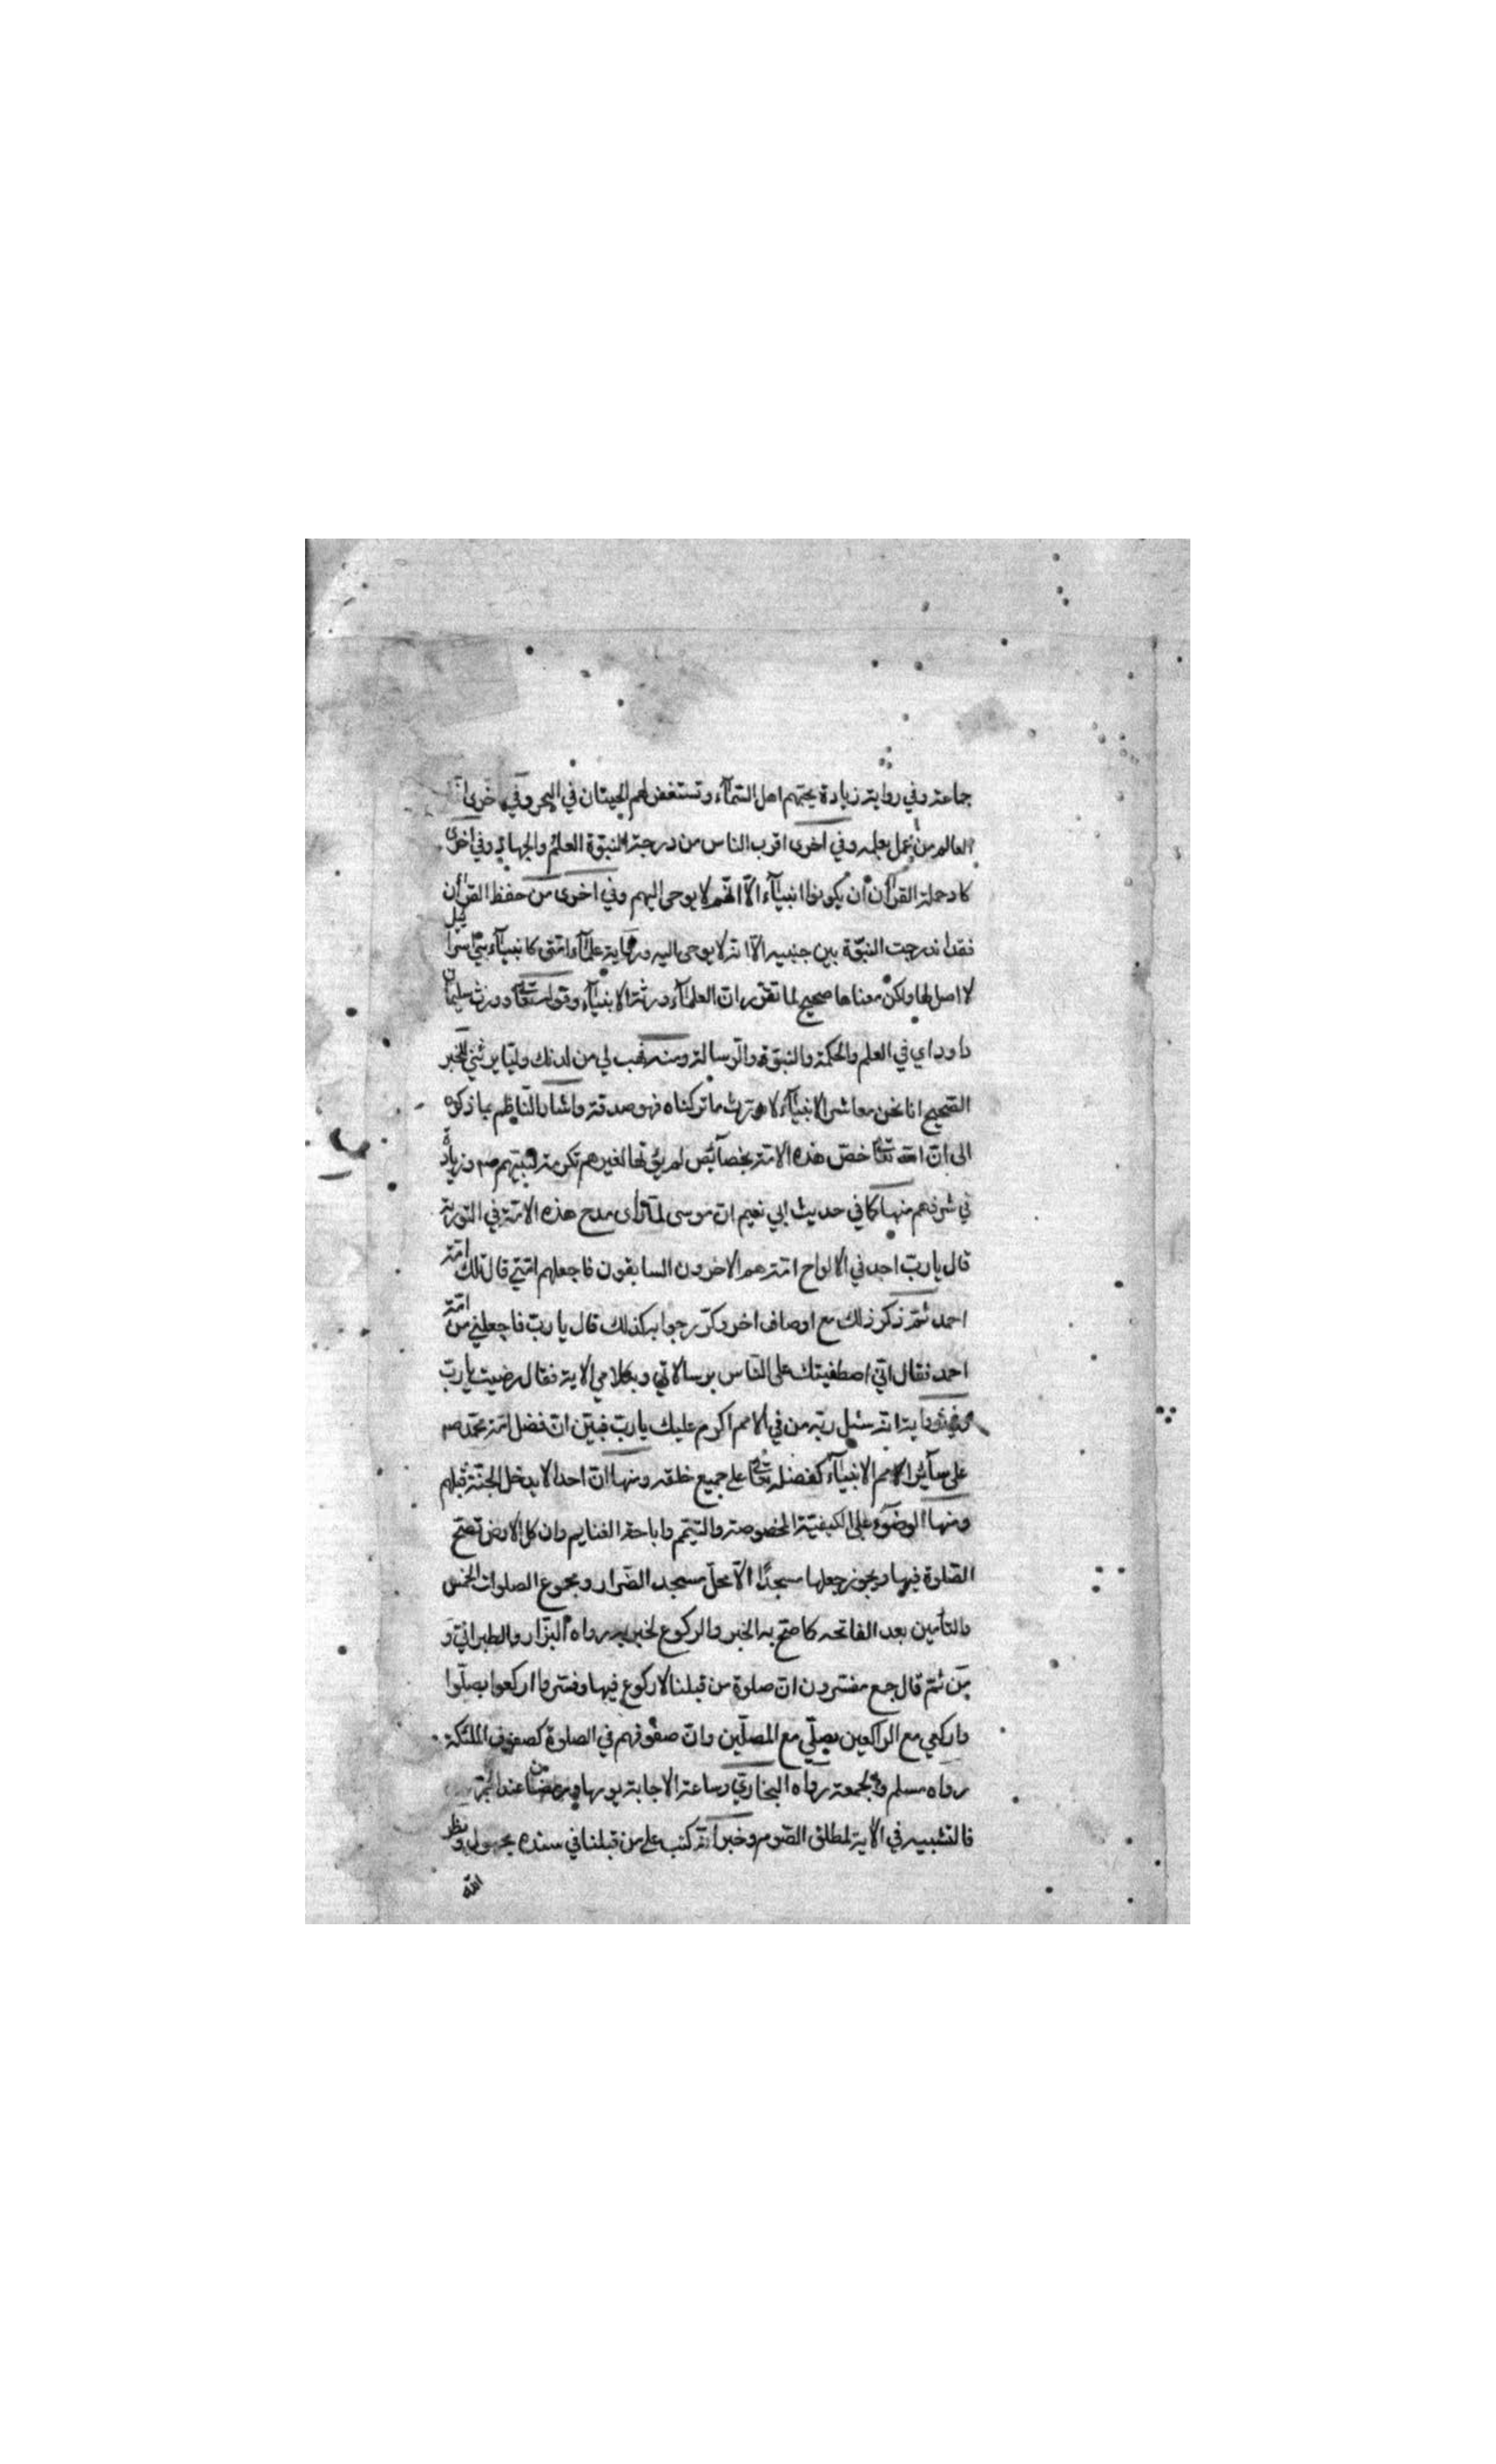 جماعة وفي رواية زيادة يحبهم اهل السمآء وتستغفر لهم الحيتان في البحر وفي اخرى انّما
العالم من عمل بعلمه وفي اخرى اقرب الناس من درجة النبوّة العلم والجهاد وفي اخرى
كاد حملة القرآن ان يكونوا انبيآء الّا انّهم لا يوحى اليهم وفي اخرى من حفظ القرآن
فقد اندرجت النبوّة بين جنبيه الّا انه لا يوحى اليه ورواية علمآء امّتي كانبيآء بني اسرائيل
لا اصل لها ولكن معناها صحيح لما تقرّر انّ العلمآء ورثة الانبيآء وقوله تعالى وورث سليمان
داود اي في العلم والحكمة والنبوّة والرسالة ومنه فهب لي من لدنك وليّا يرثني للخبر
الصحيح انا نحن معاشر الانبيآء لا نورث ما تركناه فهو صدقة واشار النّاظم بما ذكره
الى انّ الله تعالى خصّ هذه الامّة بخصآئص لم يؤتها لغيرهم تكرمة لنبيّهم صم وزيادة
في شرفهم منها كما في حديث ابي نعيم انّ موسى لمّا راى مدح هذه الامّة في التورية
قال يا ربّ اجد في الالواح امّة هم الاخرون السابقون فاجعلهم امّتي قال تلك امّة
احمد ثمّ ذكر ذلك مع اوصاف اخر وكرّر جوابه كذلك قال يا ربّ فاجعلني من امّة
احمد فقال انّي اصطفيتك على النّاس برسالاتي وبكلامي الاية فقال رضيت يا ربّ
وفي رواية انّه سئل ربّه من في الامم اكرم عليك يا ربّ فبيّن انّ فضل امّة محمّد صم
على سآئر الامم الانبيآء كفضله تعالى على جميع خلقه ومنها انّ احدا لا يدخل الجنّة قبلهم
ومنها الوضوء على الكيفيّة المخصوصة والتيمّم واباحة الغنايم وان كل الارض تصح
الصّلوة فيها ويجوز جعلها مسجدًا الّا محلّ مسجد الضّرار ومجموع الصلوات الخمس
والتأمين بعد الفاتحه كما صحّ به الخبر والركوع لخبر به رواه البزّار والطبرانيّ و
من ثمّ قال جمع مفسّرون انّ صلوة من قبلنا لا ركوع فيها وفسّروا اركعوا بصلّوا
واركعي مع الراكعين بصلّي مع المصلّين وانّ صفوفهم في الصلوة كصفوف الملئكة
رواه مسلم والجمعة رواه البخاريّ وساعة الاجابة بيومها ورمضان عند
فالتشبيه في الاية لمطلق الصّوم وخبر انّه كتب على من قبلنا في سنده مجهول ونظر
الله